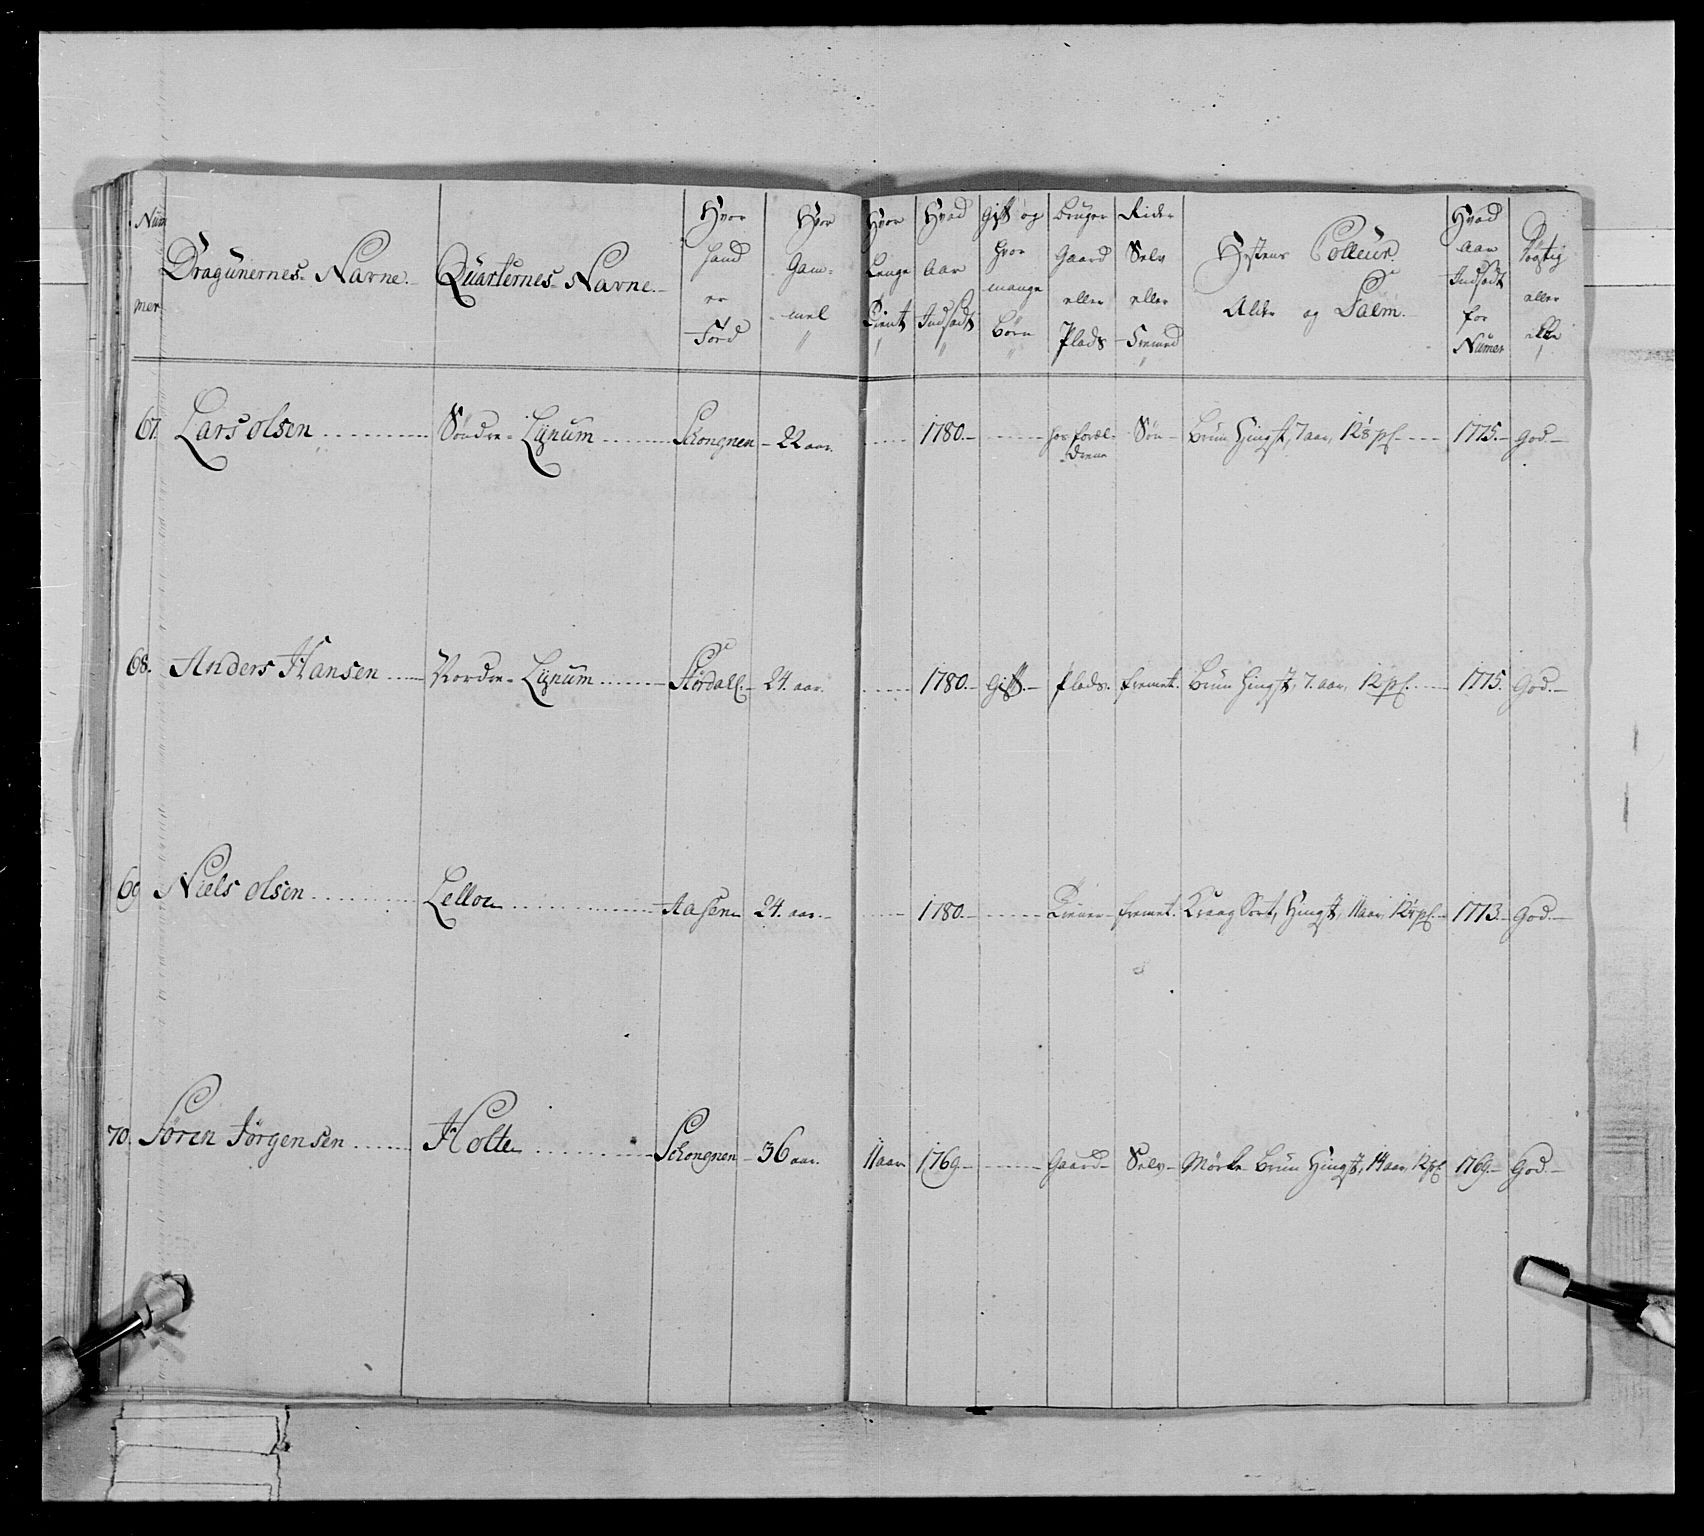 Num
mer
Dragunernes Navne.
Quarternes Navne.
Hvor
hand
er
Förd
Hvor
Gam-
mel
Hvor
Lenge
Tient
Hvad
Aar
Indsadt
Gift og
hvor
mange
Börn
Bruger
Gaard
eller
Plads
Rider
Selv
eller
Fremed
Hestens Colleur.
Alder og Palm.
Hvad
Aar
Indsadt
for
Numer
Dögtig
eller
ekke
67. Lars olsen Søndre Lynum Schongnen 22 aar. 1780. hos foræl- Søn Brun Hingst, 7 aar, 12⅛ pl. 1775. God.
drene
68. Anders Hansen Nordre Lynum Størdall. 24. aar. 1780. Gift. Plads. fremet. Brun Hingst, 7. aar, 12 pl. 1775. God.
69 Niels olsen Aasen 24. aar. 1780. Tiener fremet. Kraag Sort, Hingst, 11 aar, 1773. God.
70. Søren Jørgensen Holte Schongnen 36 aar. 11 aar 1769. Gaard Selv Mørke Brun Hingst, 14 aar, 12 pl. 1769. God.